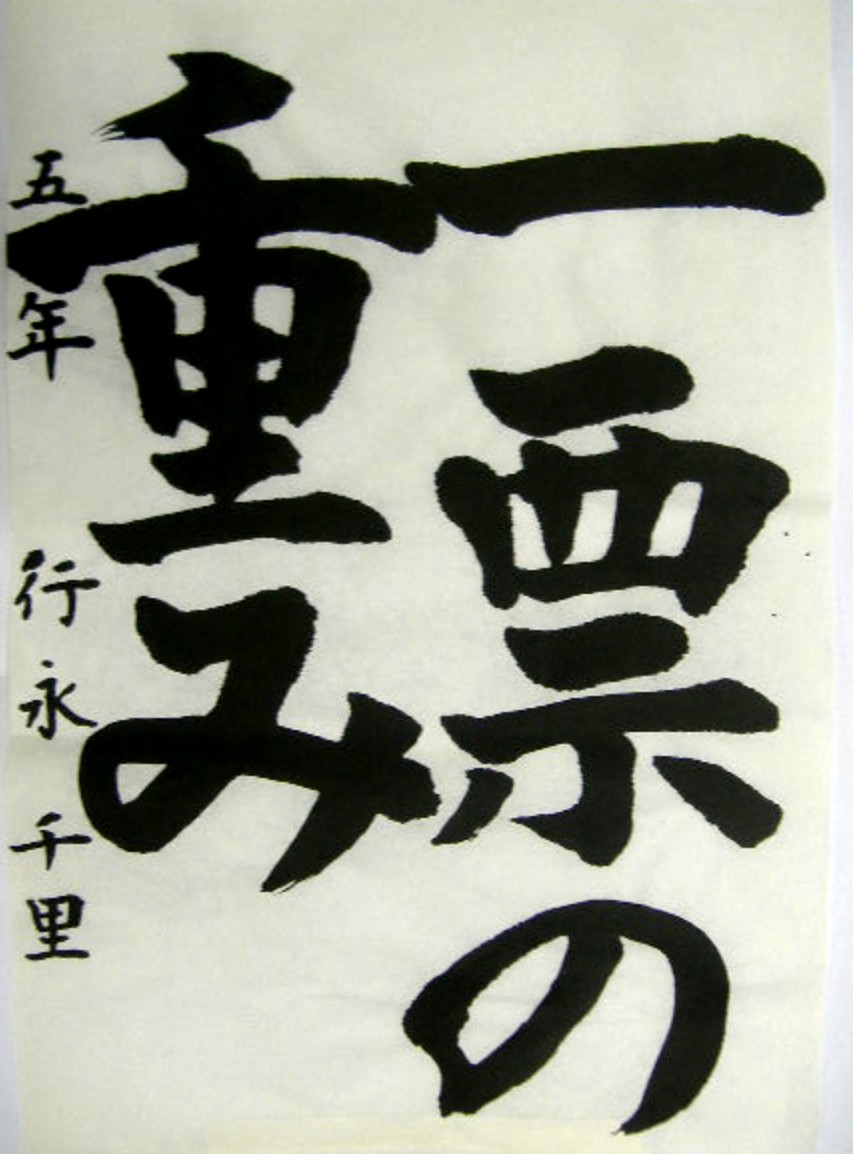 一票の
重み
五年 行永千里